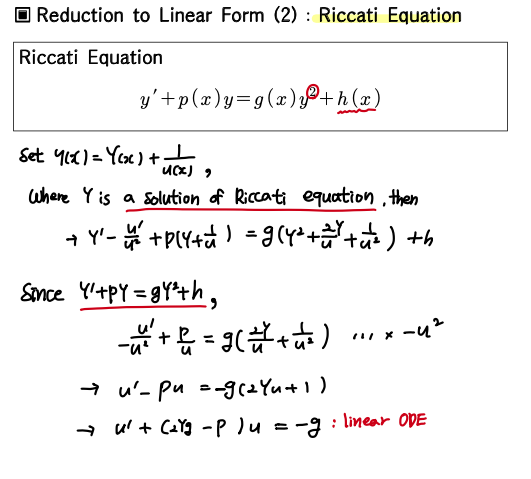 ▣ Reduction to Linear Form (2) : Riccati Equation
Riccati Equation
y′+p(x)y=g(x)y²+h(x)
Set y(x)=Y(x)+1/u(x) ,
Where Y is a solution of Riccati equation, then
→ Y'- u'/u² +p(Y+1/u) = g(Y²+2Y/u+1/u²) +h
Since Y'+pY=gY²+h,
-u'/u² + p/u = g(2Y/u+1/u²) ... × -u²
→ u'- pu =-g(2Yu+1)
→ u' + (2Yg -p )u = -g : linear ODE